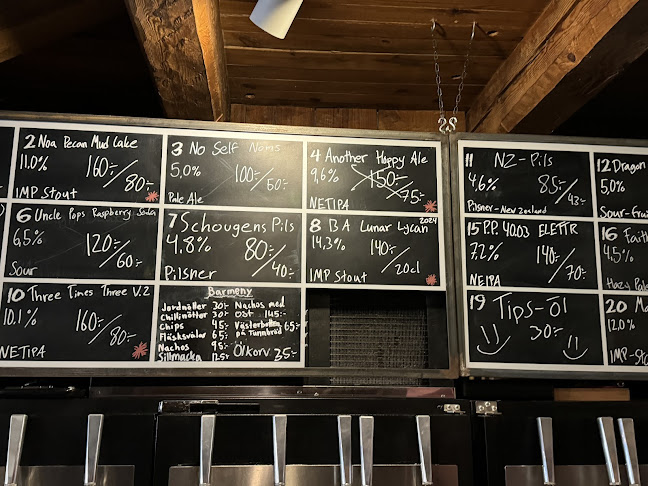 2 Noa Pecan Mud Cake
11.0% 160:-/80:-
IMP Stout
3 No Self Nøms
5,0% 100:-/50:-
Pale Ale
4 Another Happy Ale
9,6% 150:-/75:-
NETIPA
6 Uncle Pops Raspberry Soda
6,5% 120:-/60:-
Sour
7 Schougens Pils
4.8% 80:-/40:-
Pilsner
8 BA Lunar Lycan 2024
14,3% 140:-/20cl
IMP Stout
10 Three Times Three V.2
10.1% 160:-/80:-
NETIPA
Barmeny
Jordnötter 30:-
Chilinötter 30:-
Chips 45:-
Fläsksvålar 65:-
Nachos 95:-
Sillmacka 125:-
Nachos med
ost 145:-
Västerbotten
på Tunnbröd 65:-
Ölkorv 35:-
11 NZ-Pils
4,6% 85:-/43:-
Pilsner-New Zealand
12 Dragon
5,0%
Sour-fru
15 P.P. 40.03 ELETTR
7.2% 140:-/70:-
NEIPA
16 Faith
4,5%
Hazy Pale
19 Tips-öl
30:-
20
12,0%
IMP-Sto